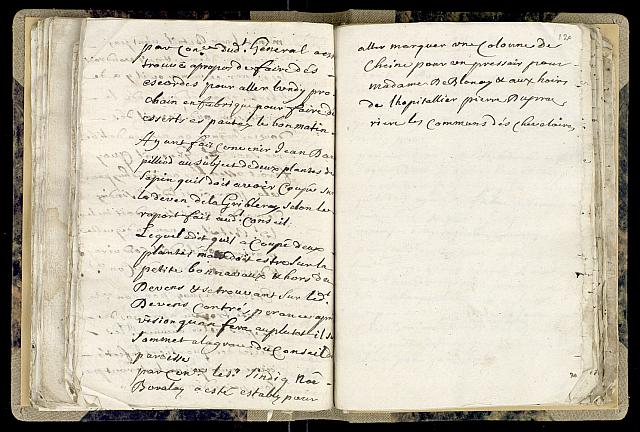 par Con.^e dud.^t General a esté
trouvé apropos de faire des
escordes pour aller lundy pro
chain en fabrique pour faire du
essert es pautex le bon matin
Ayant fait convenir Jean Bar
pilliod au subject de deux plantes de
sapin quil doit avoir Coupé sur
le deven de la Gribleray selon le
raport fait aud.^t Conseil.
Lequel dit quil a Coupé deux
plantes mais doit estre sur la
petite bonnavaux & hors de
Devens & se trouvant sur led.^t
Devens
vision quon fera au plutot il se
sommet a la grace du Conseil
paroisse
par Con.^e le S.^r Sindiq Noé
Bovalay a esté estably pour
120
aller marquer une Colonne de
Cheine pour un pressoir pour
Madame De Blonay & aux hoirs
de lhopitallier pierre Duprra
riere les Communs des Chevalaire